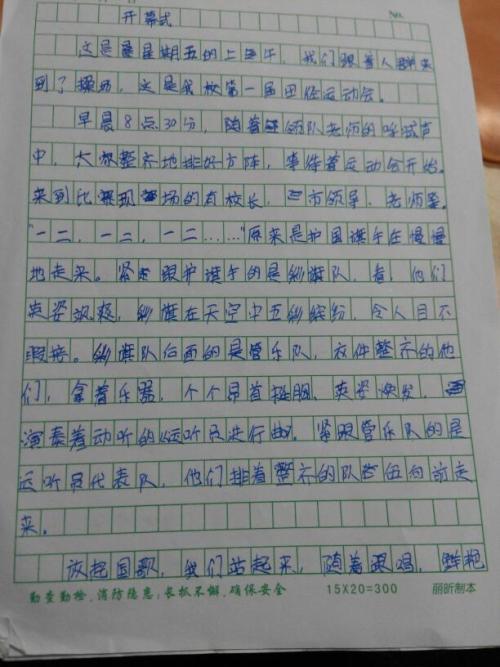 No.
开幕式
这是星期五的上午，我们跟着人群来
到了操场，这是我校第一届田径运动会。
早晨8点30分，随着领队老师的呼喊声
中，大都整齐地排好方阵，等待着运动会开始。
来到比赛现场的有校长，市领导，老师等。
"一二，一二，一二……"原来是护国旗手在慢慢
地走来。紧跟护旗手的是彩旗队，看，他们
英姿飒爽，彩旗在天空中五彩缤纷，令人目不
暇接。彩旗队后面的是管乐队，衣件整齐的他
们，拿着乐器，个个昂首挺胸，英姿焕发，
演奏着动听的《运听员进行曲。紧跟管乐队的是
运听员代表队，他们排着整齐的队伍向前走
来。
放起国歌，我们站起来，随着跟唱，鲜艳
勤查勤检，消防隐患；长抓不懈，确保安全 15X20=300 丽昕制本